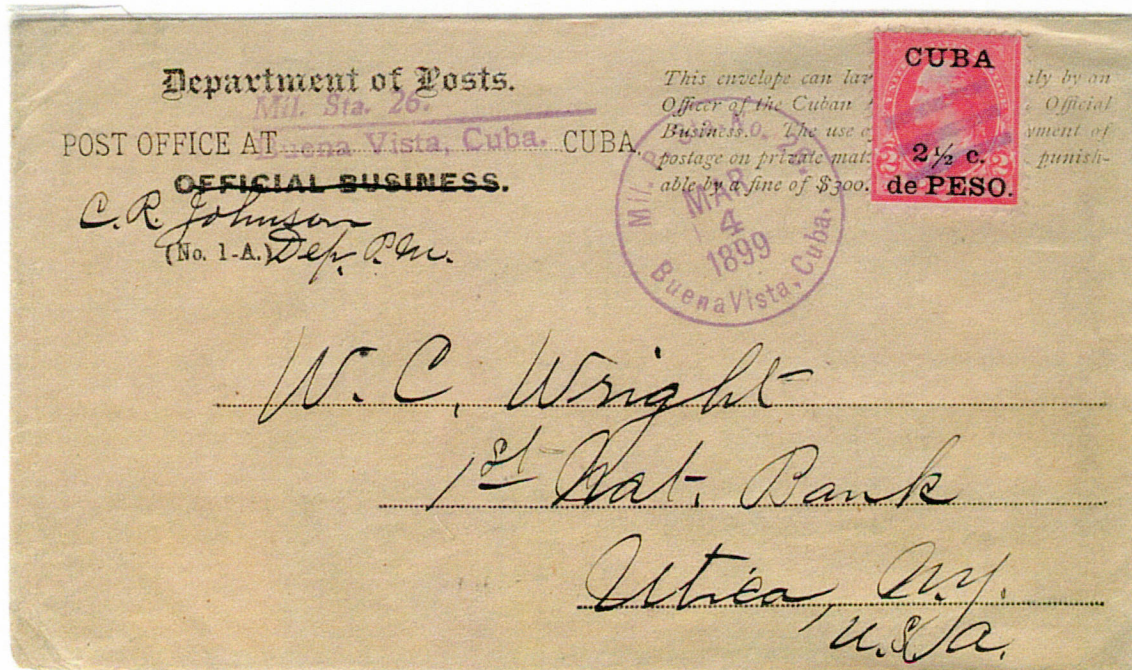 Department of Posts.
Mil. Sta. 26.
POST OFFICE AT Buena Vista, Cuba. CUBA.
OFFICIAL BUSINESS.
C. R. Johnson
(No. 1-A.) Dep. P. M.
This envelope can law ly by an
Officer of the Cuban Official
Business. The use of yment of
postage on private mat punish-
able by a fine of $300.
CUBA
2 2
2½ c.
de PESO.
Mil. P. Sta. No. 26.
MAR
4
1899
Buena Vista, Cuba.
W. C. Wright
1st Nat. Bank
Utica, N.Y.
U.S.A.